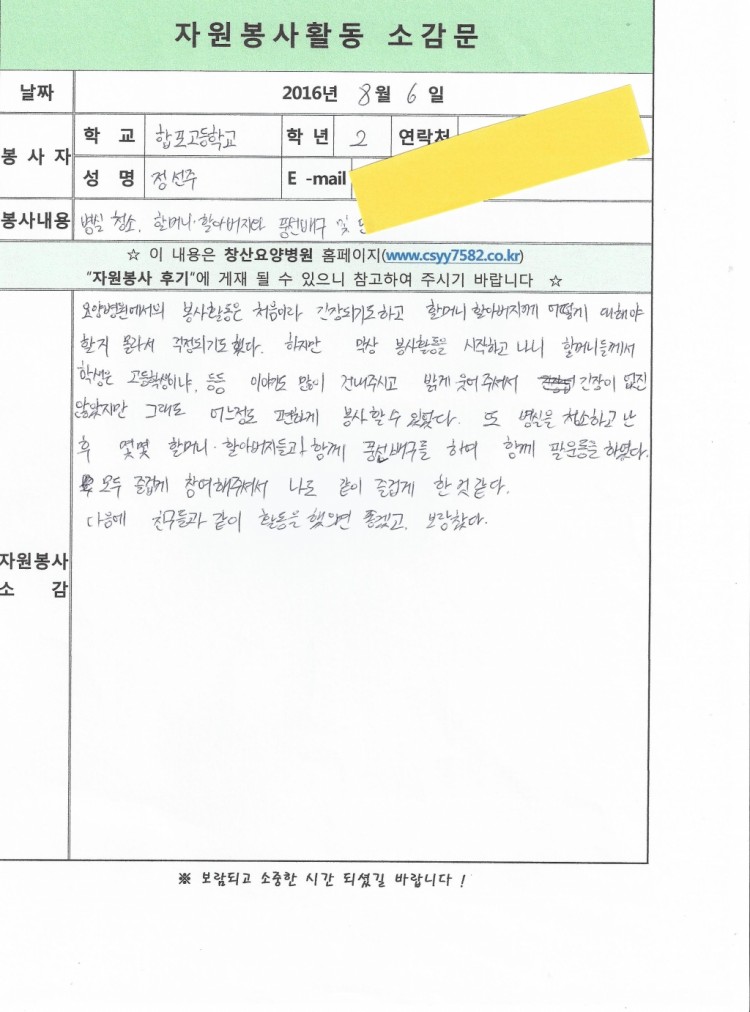 자원봉사활동 소감문
날짜 2016년 8월 6일
봉사자 학 교 합포고등학교 학 년 2 연락처
성 명 정선주 E -mail
봉사내용 병실 청소, 할머니·할아버지와 풍선배구 및
☆ 이 내용은 창산요양병원 홈페이지(www.csyy7582.co.kr)
"자원봉사 후기"에 게재 될 수 있으니 참고하여 주시기 바랍니다 ☆
요양병원에서의 봉사활동은 처음이라 긴장되기도하고 할머니 할아버지께 어떻게 대해야
할지 몰라서 걱정되기도 했다. 하지만 막상 봉사활동을 시작하고 나니 할머니들께서
학생은 고등학생이냐, 등등 이야기도 많이 건네주시고 밝게 웃어 주셔서 긴장이 없질
않았지만 그래도 어느정도 편하게 봉사할 수 있었다. 또 병실을 청소하고 난
후 몇몇 할머니·할아버지들과 함께 풍선배구를 하며 함께 팔운동을 하였다.
모두 즐겁게 참여해주셔서 나도 같이 즐겁게 한 것 같다.
다음에 친구들과 같이 활동을 했으면 좋겠고, 보람찼다.
자원봉사
소 감
※ 보람되고 소중한 시간 되셨길 바랍니다 !